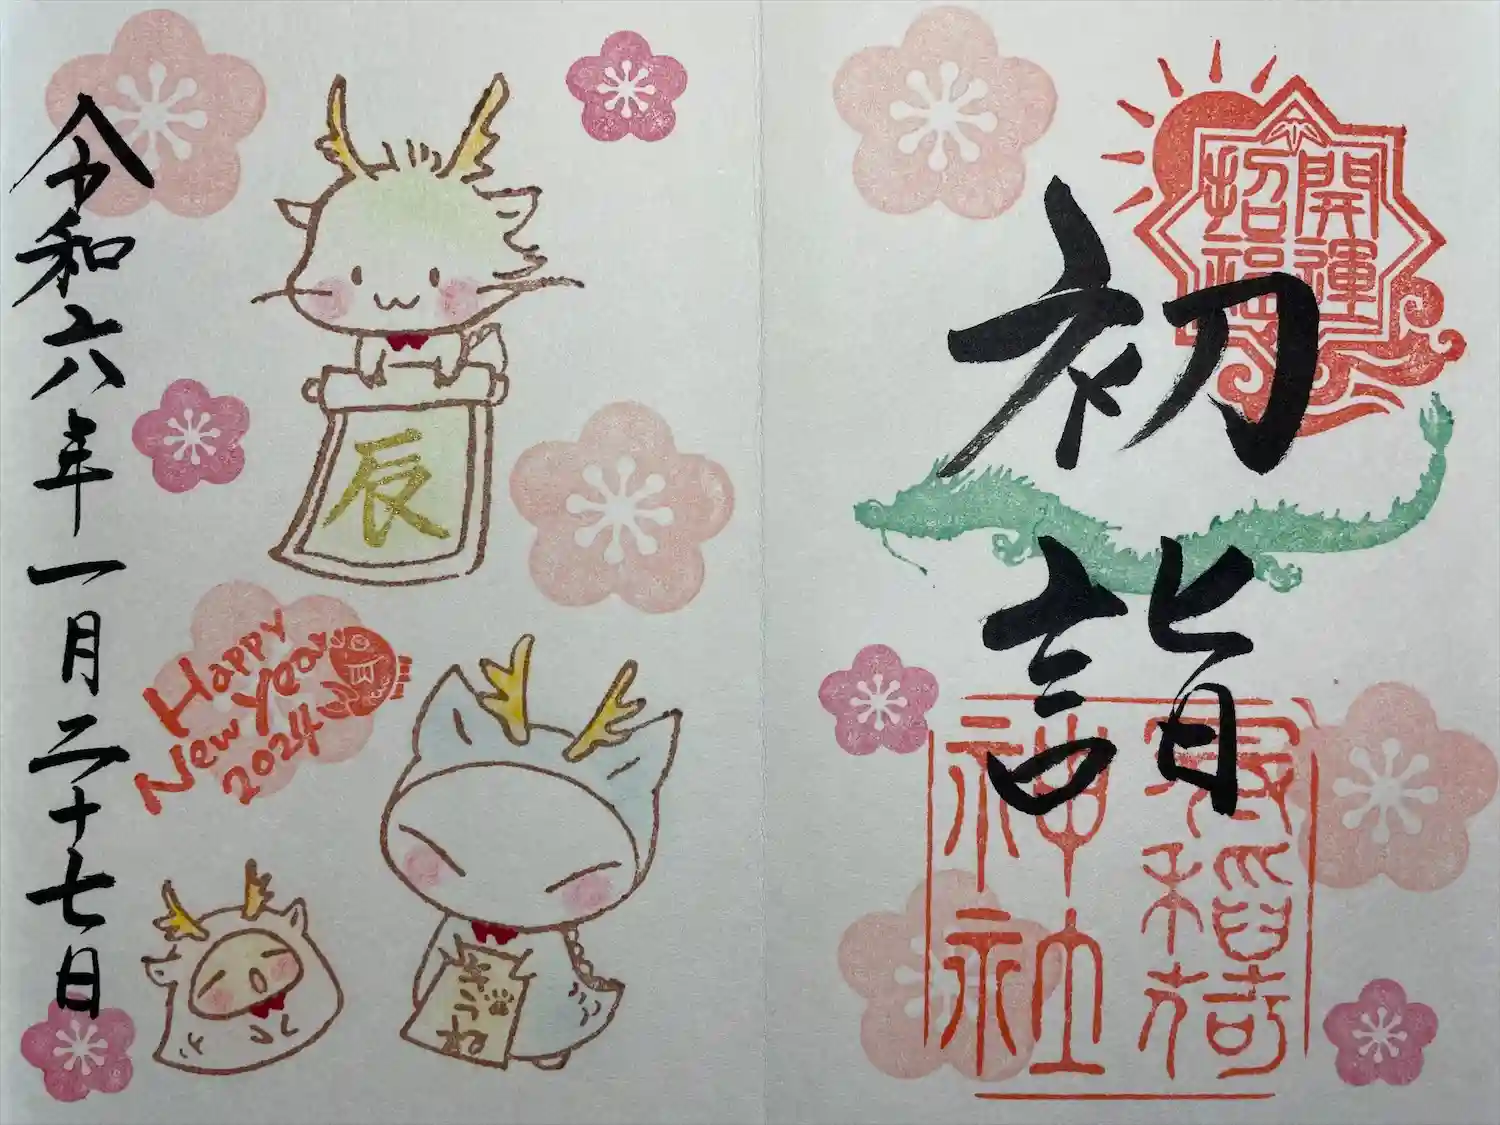 初詣
開運
招福
稲荷
神社
辰
Happy
New Year
2024
令和六年一月二十七日